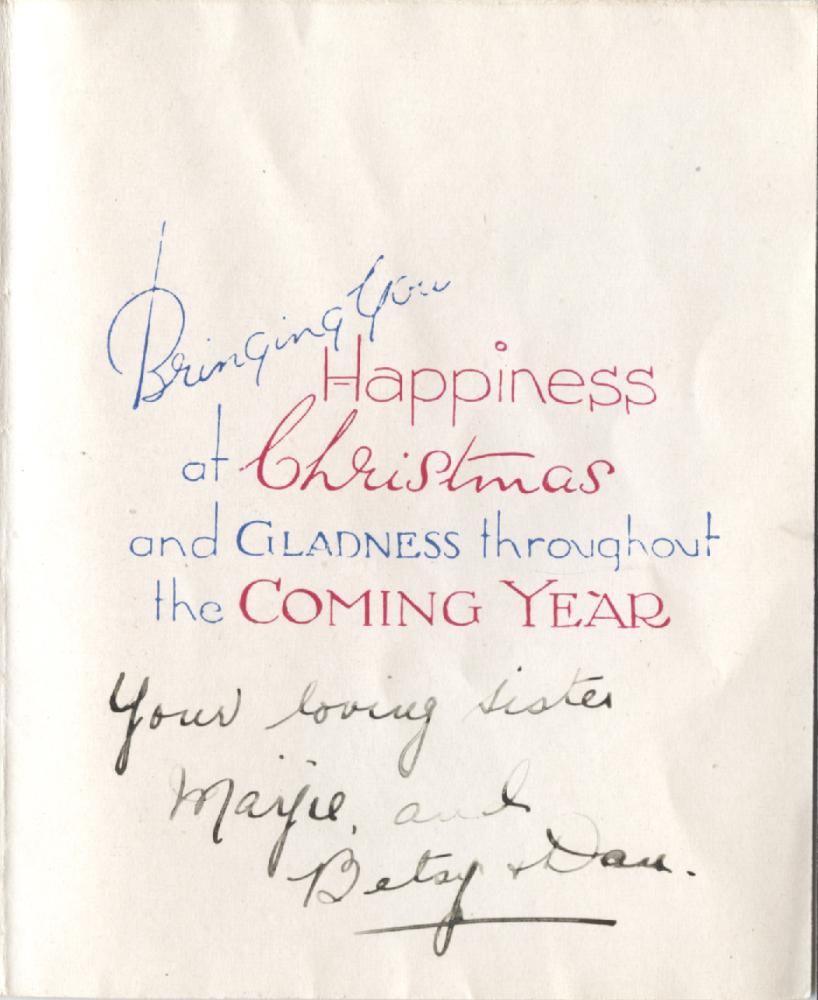 Bringing You
Happiness
at Christmas
and GLADNESS throughout
the COMING YEAR
Your loving sister
Marjie, and
Betsy + Dan.